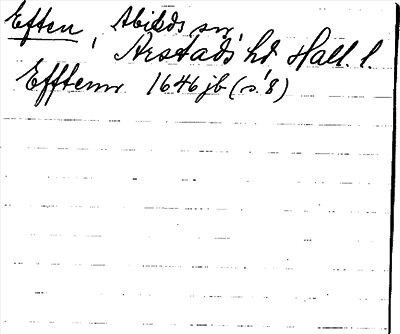 Eften, Abilds sn
Årstads hd Hall. l.
Efftenn 1646 jb (s. 8)